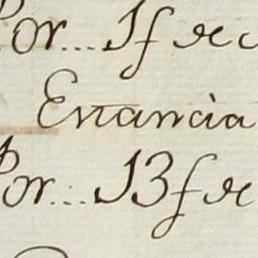 Por... 1 f de
Enancia
Por... 13 f de